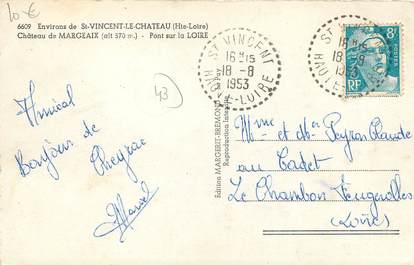 10 €
6609 Environs de St-VINCENT-LE-CHATEAU (Hte-Loire)
Château de MARGEAIX (alt 570 m.) - Pont sur la LOIRE
ST VINCENT
16 H 15
18 - 8
1953
HAUTE-LOIRE
ST VINCENT
18 - 8
1953
8F
RF
43
Amical
Bonjour de
Cheyrac
Marcel
Édition MARGERIT-BRÉMOND
Reproduction Interdite
Mme et Mr Peyron Claude
au Cadet
Le Chambon Feugerolles
(Loire)